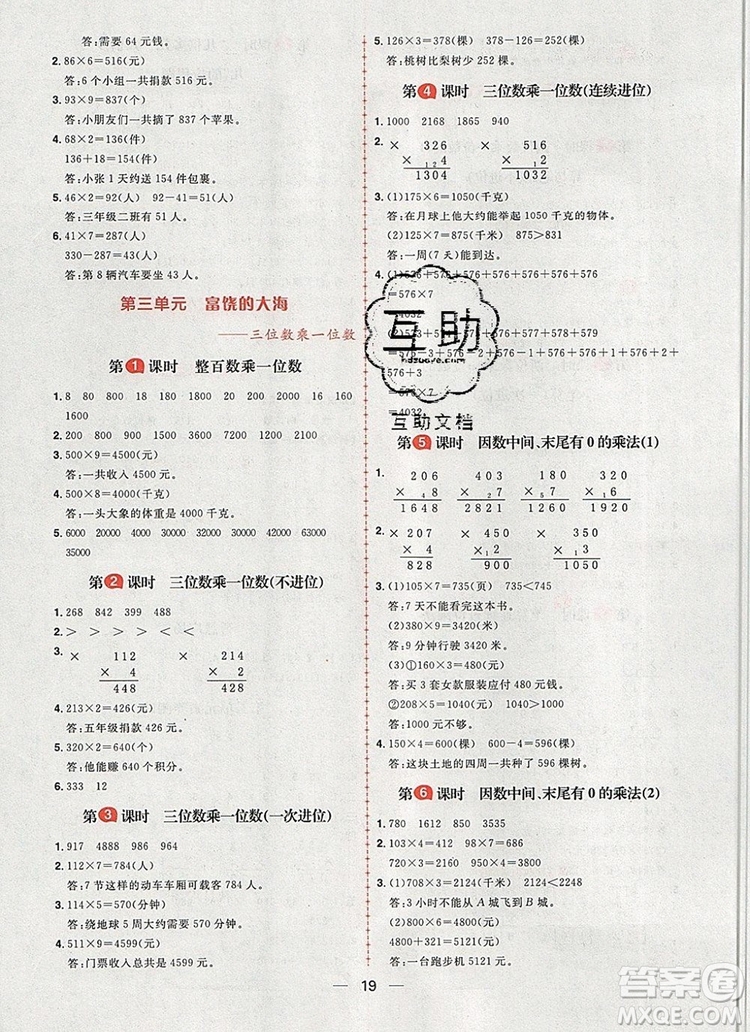 答:需要 64 元钱。
2. 86×6=516(元)
答:6 个小组一共捐款 516 元。
3. 93×9=837(个)
答:小朋友们一共摘了 837 个苹果。
4. 68×2=136(件)
136+18=154(件)
答:小张 1 天约送 154 件包裹。
5. 46×2=92(人) 92-41=51(人)
答:三年级二班有 51 人。
6. 41×7=287(人)
330-287=43(人)
答:第 8 辆汽车要坐 43 人。
第三单元 富饶的大海
——三位数乘一位数
第1课时 整百数乘一位数
1. 8 80 800 2 20 200 2000 16 160
1600
2. 800 1500 1400 1800 7200 2100
3. 500×9=4500(元)
答:一共收入 4500 元。
4. 500×8=4000(千克)
答:一头大象的体重是 4000 千克。
5. 6000 21000 20000 30000 32000
35000
第2课时 三位数乘一位数(不进位)
1. 268 842 399 488
2. > > > > < >
3. 112 214
× 4 × 2
448 428
4. 213×2=426(元)
答:五年级捐款 426 元。
5. 320×2=640(个)
答:他能赚 640 个金币。
6. 333 12
第3课时 三位数乘一位数(一次进位)
1. 917 4888 986 964
2. 112×7=784(人)
答:7 节这样的动车车厢可载客 784 人。
3. 114×5=570(分钟)
答:绕地球 5 周大约需要 570 分钟。
4. 511×9=4599(元)
答:门票收入总共是 4599 元。
5. 126×3=378(棵) 378-126=252(棵)
答:桃树比梨树少 252 棵。
第4课时 三位数乘一位数(连续进位)
1. 1000 2168 1865 940
2. 326 516
× 4 × 2
1304 1032
3. (1)175×6=1050(千克)
答:在月球上他大约能举起 1050 千克的物体。
(2)125×7=875(千米) 875>831
答:一周(7 天)能到达。
4. (1)576+576+576+576+576+576+576
=576×7
=4032
576+3
=576×7
=4032
互助
互助文档
第5课时 因数中间、末尾有 0 的乘法(1)
1. 206 403 480 320
× 8 × 7 × 5 × 9
1648 2821 2400 2880
2. × 207 × 450 × 350
4 2 3
828 900 1050
3. (1)105×7=735(页) 735<742
答:7 天不能看完这本书。
(2)380×9=3420(米)
答:9 分钟行驶 3420 米。
(3)①160×3=480(元)
答:买 3 套女款服装应付 480 元钱。
②208×5=1040(元) 1040>1000
答:1000 元不够。
4. 150×4=600(棵) 600-4=596(棵)
答:这块土地的四周一共种了 596 棵树。
第6课时 因数中间、末尾有 0 的乘法(2)
1. 780 1612 850 3535
2. 103×4=412 450×6=2700
720×3=2160 430×2=860
3. (1)708×3=2124(千米) 2124<2248
答:3 小时不能从 A 城飞到 B 城。
(2)800×6=4800(元)
4800+321=5121(元)
答:一台跑步机 5121 元。
19
答案圈
MXQE.COM